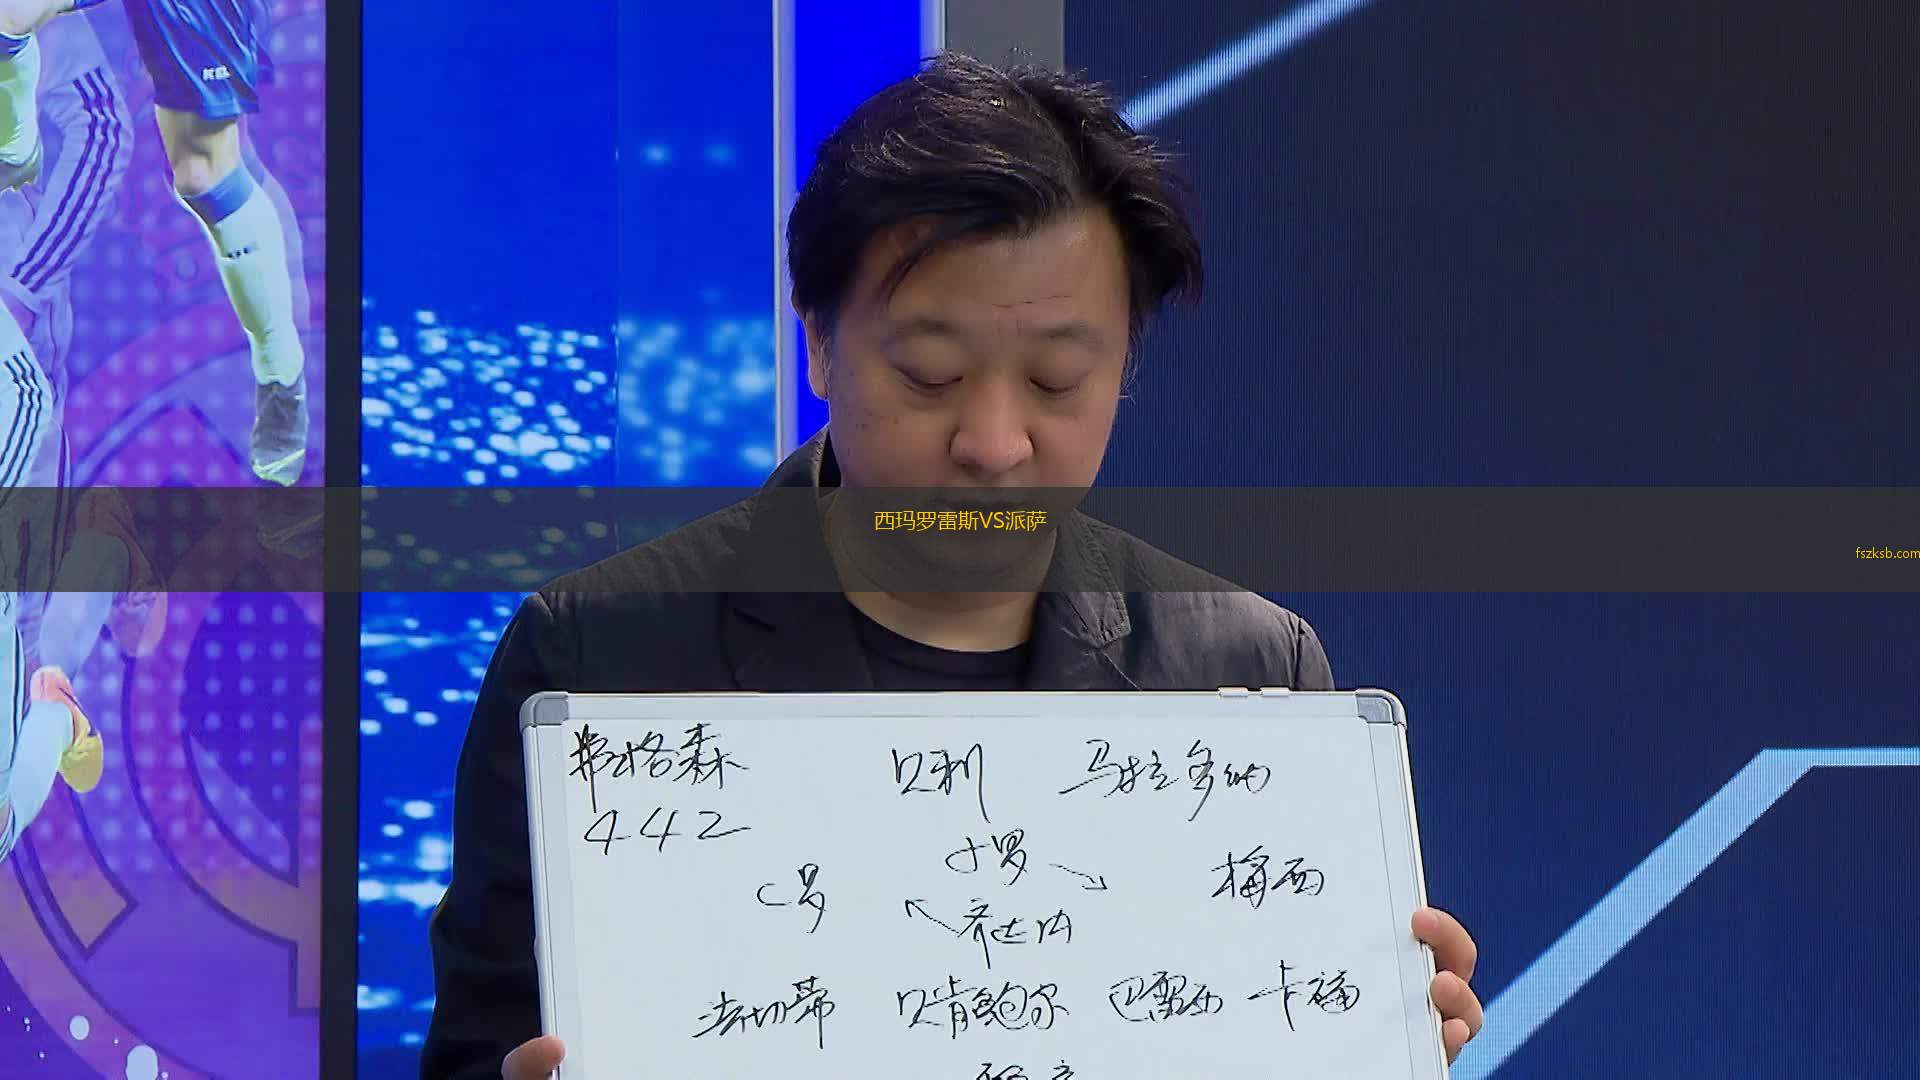 西玛罗雷斯VS派萨
fszksb.com
弗格森 贝利 马拉多纳
442
小罗
C罗 梅西
齐达内
法切蒂 贝肯鲍尔 巴雷西 卡福